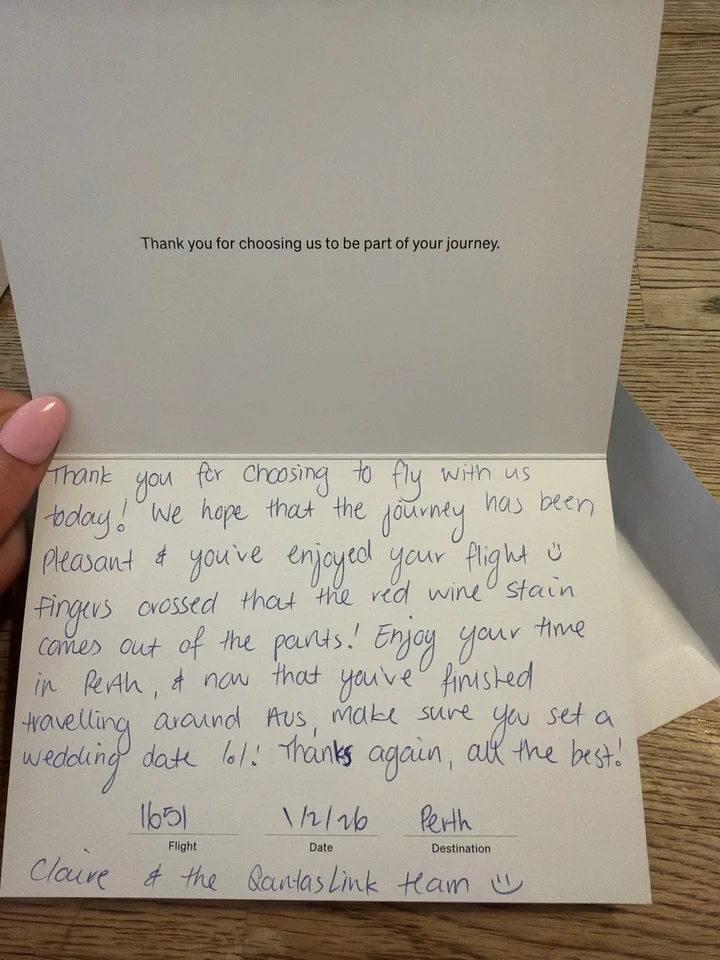 Thank you for choosing us to be part of your journey.
Thank you for choosing to fly with us
today! We hope that the journey has been
pleasant & you've enjoyed your flight ☺
Fingers crossed that the red wine stain
comes out of the pants! Enjoy your time
in Perth, & now that you've finished
travelling around Aus, make sure you set a
wedding date lol! Thanks again, all the best!
1651 1/2/26 Perth
Flight Date Destination
Claire & the QantasLink team ☺